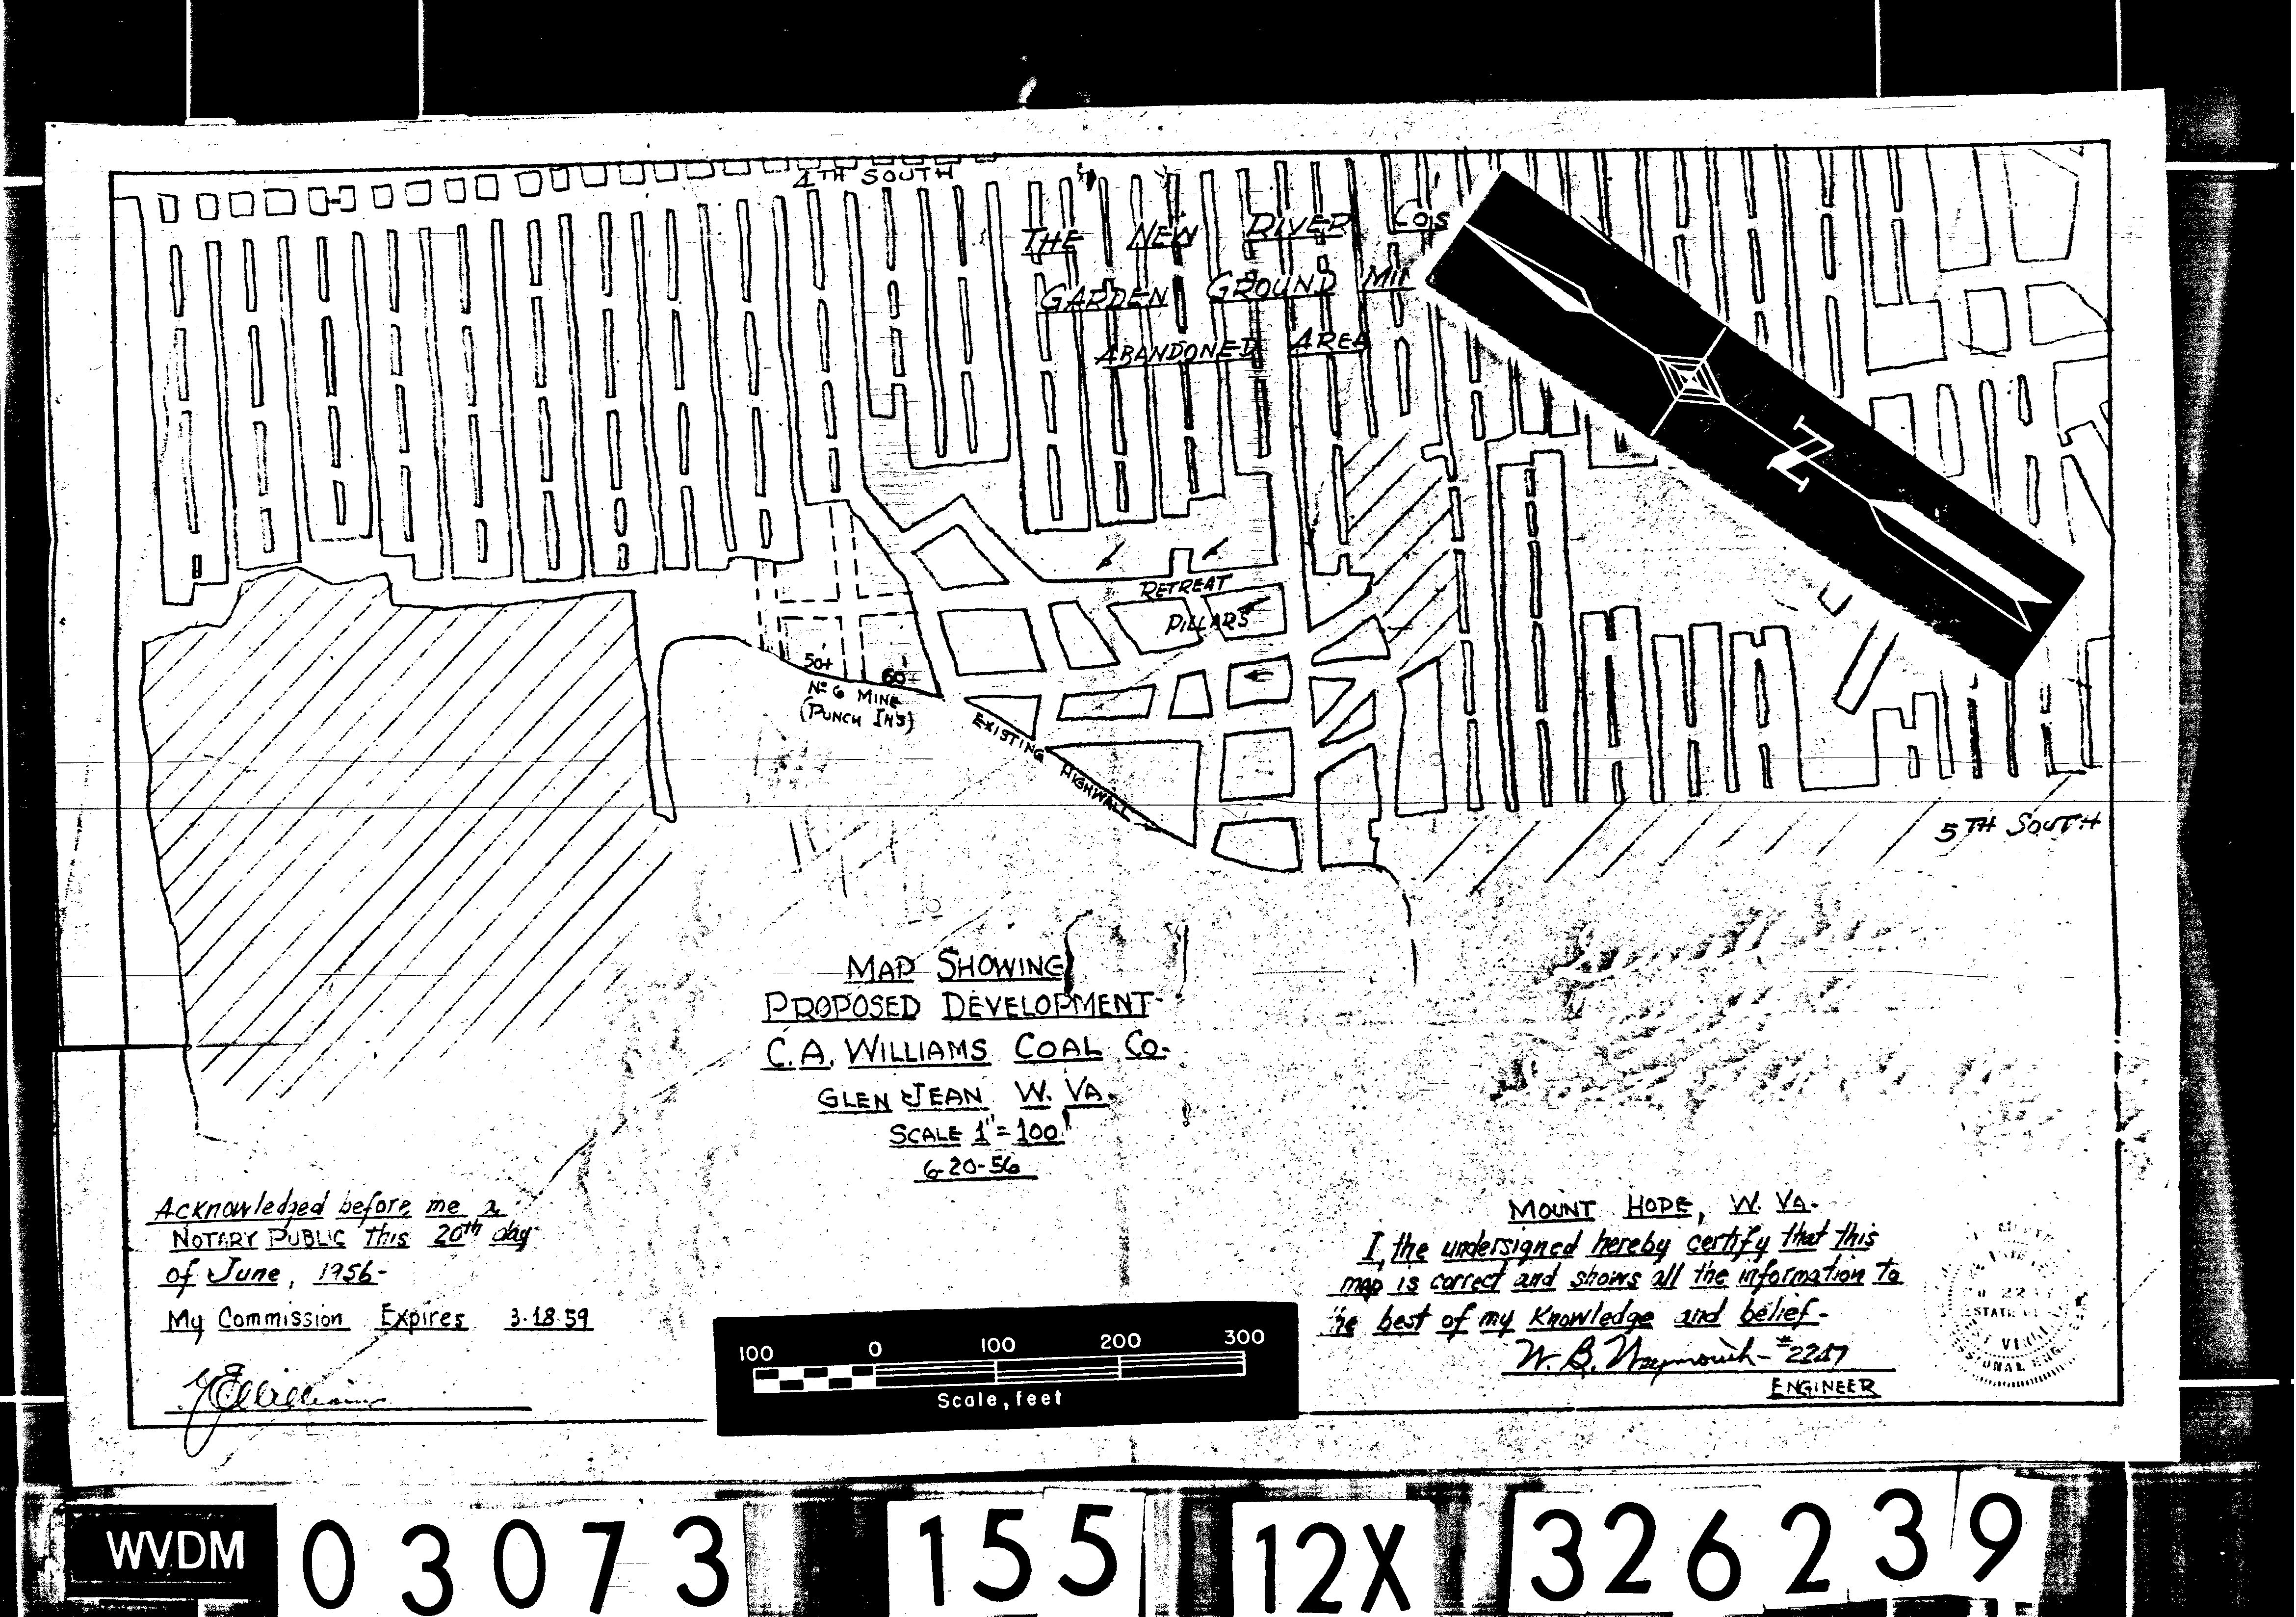 4TH SOUTH
THE NEW RIVER COS
GARDEN GROUND MIN
ABANDONED AREA
N
RETREAT
PILLARS
50±
60±
No 6 MINE
(PUNCH IN'S)
EXISTING HIGHWALL
5TH SOUTH
MAP SHOWING
PROPOSED DEVELOPMENT
C.A. WILLIAMS COAL CO.
GLEN JEAN W. VA.
SCALE 1"=100'
6-20-56
Acknowledged before me a
NOTARY PUBLIC this 20th day
of June, 1956-
My Commission Expires 3-18-59
MOUNT HOPE, W. VA.
I, the undersigned hereby certify that this
map is correct and shows all the information to
he best of my Knowledge and belief-
W. B.
ENGINEER
STATE
100 0 100 200 300
Scale, feet
WVDM 03073 155 12X 326239